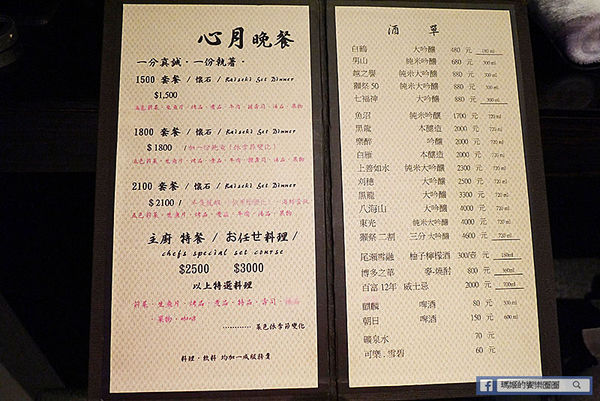 心月晚餐
一分真誠・一份執著・
1500 套餐 / 懷石 / Kaiseki Set Dinner
$1,500
五色前菜・生魚片・烤品・煮品・牛肉・握壽司・湯品・果物
1800 套餐 / 懷石 / Kaiseki Set Dinner
$1800 / 加一份鮑魚(依季節變化)
五色前菜・生魚片・烤品・煮品・牛肉・握壽司・湯品・果物
2100 套餐 / 懷石 / Kaiseki Set Dinner
$2100 /
五色前菜・生魚片・烤品・煮品・牛肉・湯品・果物
主廚 特餐 / お任せ料理 /
chefs special set course
$2500 $3000
以上特選料理
前菜・生魚片・烤品・煮品・特品・壽司・湯品
・果物・咖啡
............ 菜色依季節變化
料理・飲料 均加一成服務費
酒 單
白鶴 大吟釀 480 元 180 ml
男山 純米大吟釀 680 元 300 ml
越之譽 純米大吟釀 680 元 300 ml
獺祭 50 純米大吟釀 880 元 300 ml
七福神 大吟釀 880 元 300 ml
魚沼 純米吟釀 1700 元 720 ml
黑龍 本釀造 2000 元 720 ml
樂醉 吟釀 2000 元 720 ml
白雁 本釀造 2000 元 720 ml
上善如水 純米大吟釀 2300 元 720 ml
刈穗 大吟釀 2500 元 720 ml
黑龍 大吟釀 3300 元 720 ml
八海山 大吟釀 4000 元 720 ml
東光 純米大吟釀 4000 元 720 ml
獺祭 二割 三分 大吟釀 4600 元 720 ml
尾瀨雪融 柚子檸檬酒 300/壺 元 150ml
博多之華 麥-燒酎 800 元 360ml
百富 12年 威士忌 2000 元 700ml
麒麟 啤酒 80 元 330 ml
朝日 啤酒 150 元 600 ml
礦泉水 70 元
可樂.雪碧 60 元
瑪姬的饗樂圈圈